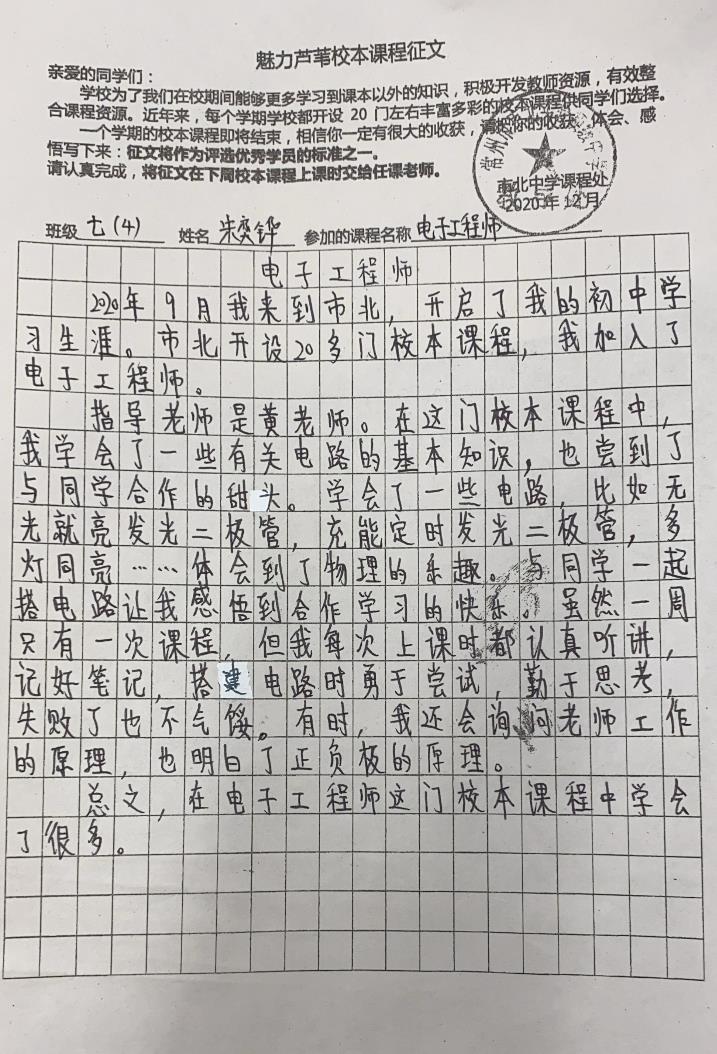 魅力芦苇校本课程征文
亲爱的同学们：
学校为了我们在校期间能够更多学习到课本以外的知识，积极开发教师资源，有效整
合课程资源。近年来，每个学期学校都开设 20 门左右丰富多彩的校本课程供同学们选择。
一个学期的校本课程即将结束，相信你一定有很大的收获，请把你的收获、体会、感
悟写下来：征文将作为评选优秀学员的标准之一。
请认真完成，将征文在下周校本课程上课时交给任课老师。
市北中学课程处
2020 年 12 月
班级 七(4) 姓名 朱奕铧 参加的课程名称 电子工程师
电子工程师
2020年9月我来到市北，开启了我的初中学
习生涯。市北开设20多门校本课程，我加入了
电子工程师。
指导老师是黄老师。在这门校本课程中，
我学会了一些有关电路的基本知识，也尝到了
与同学合作的甜头。学会了一些电路，比如无
光就亮发光二极管，充能定时发光二极管，多
灯同亮……体会到了物理的乐趣。与同学一起
搭电路让我感悟到合作学习的快乐。虽然一周
只有一次课程，但我每次上课时都认真听讲，
记好笔记，搭建电路时勇于尝试，勤于思考，
失败了也不气馁。有时，我还会询问老师工作
的原理，也明白了正负极的原理。
总文，在电子工程师这门校本课程中学会
了很多。